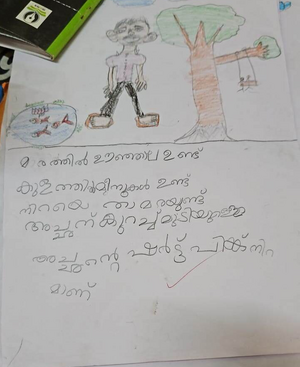 മരത്തിൽ ഊഞ്ഞാല ഉണ്ട്
കുളത്തിൽ മീനുകൾ ഉണ്ട്
നിറയെ താമരയുണ്ട്
അച്ഛന് കുറച്ച് മുടിയുള്ളൂ
അച്ഛൻ്റെ ഷർട്ട് പിങ്ക് നിറ
മാണ്